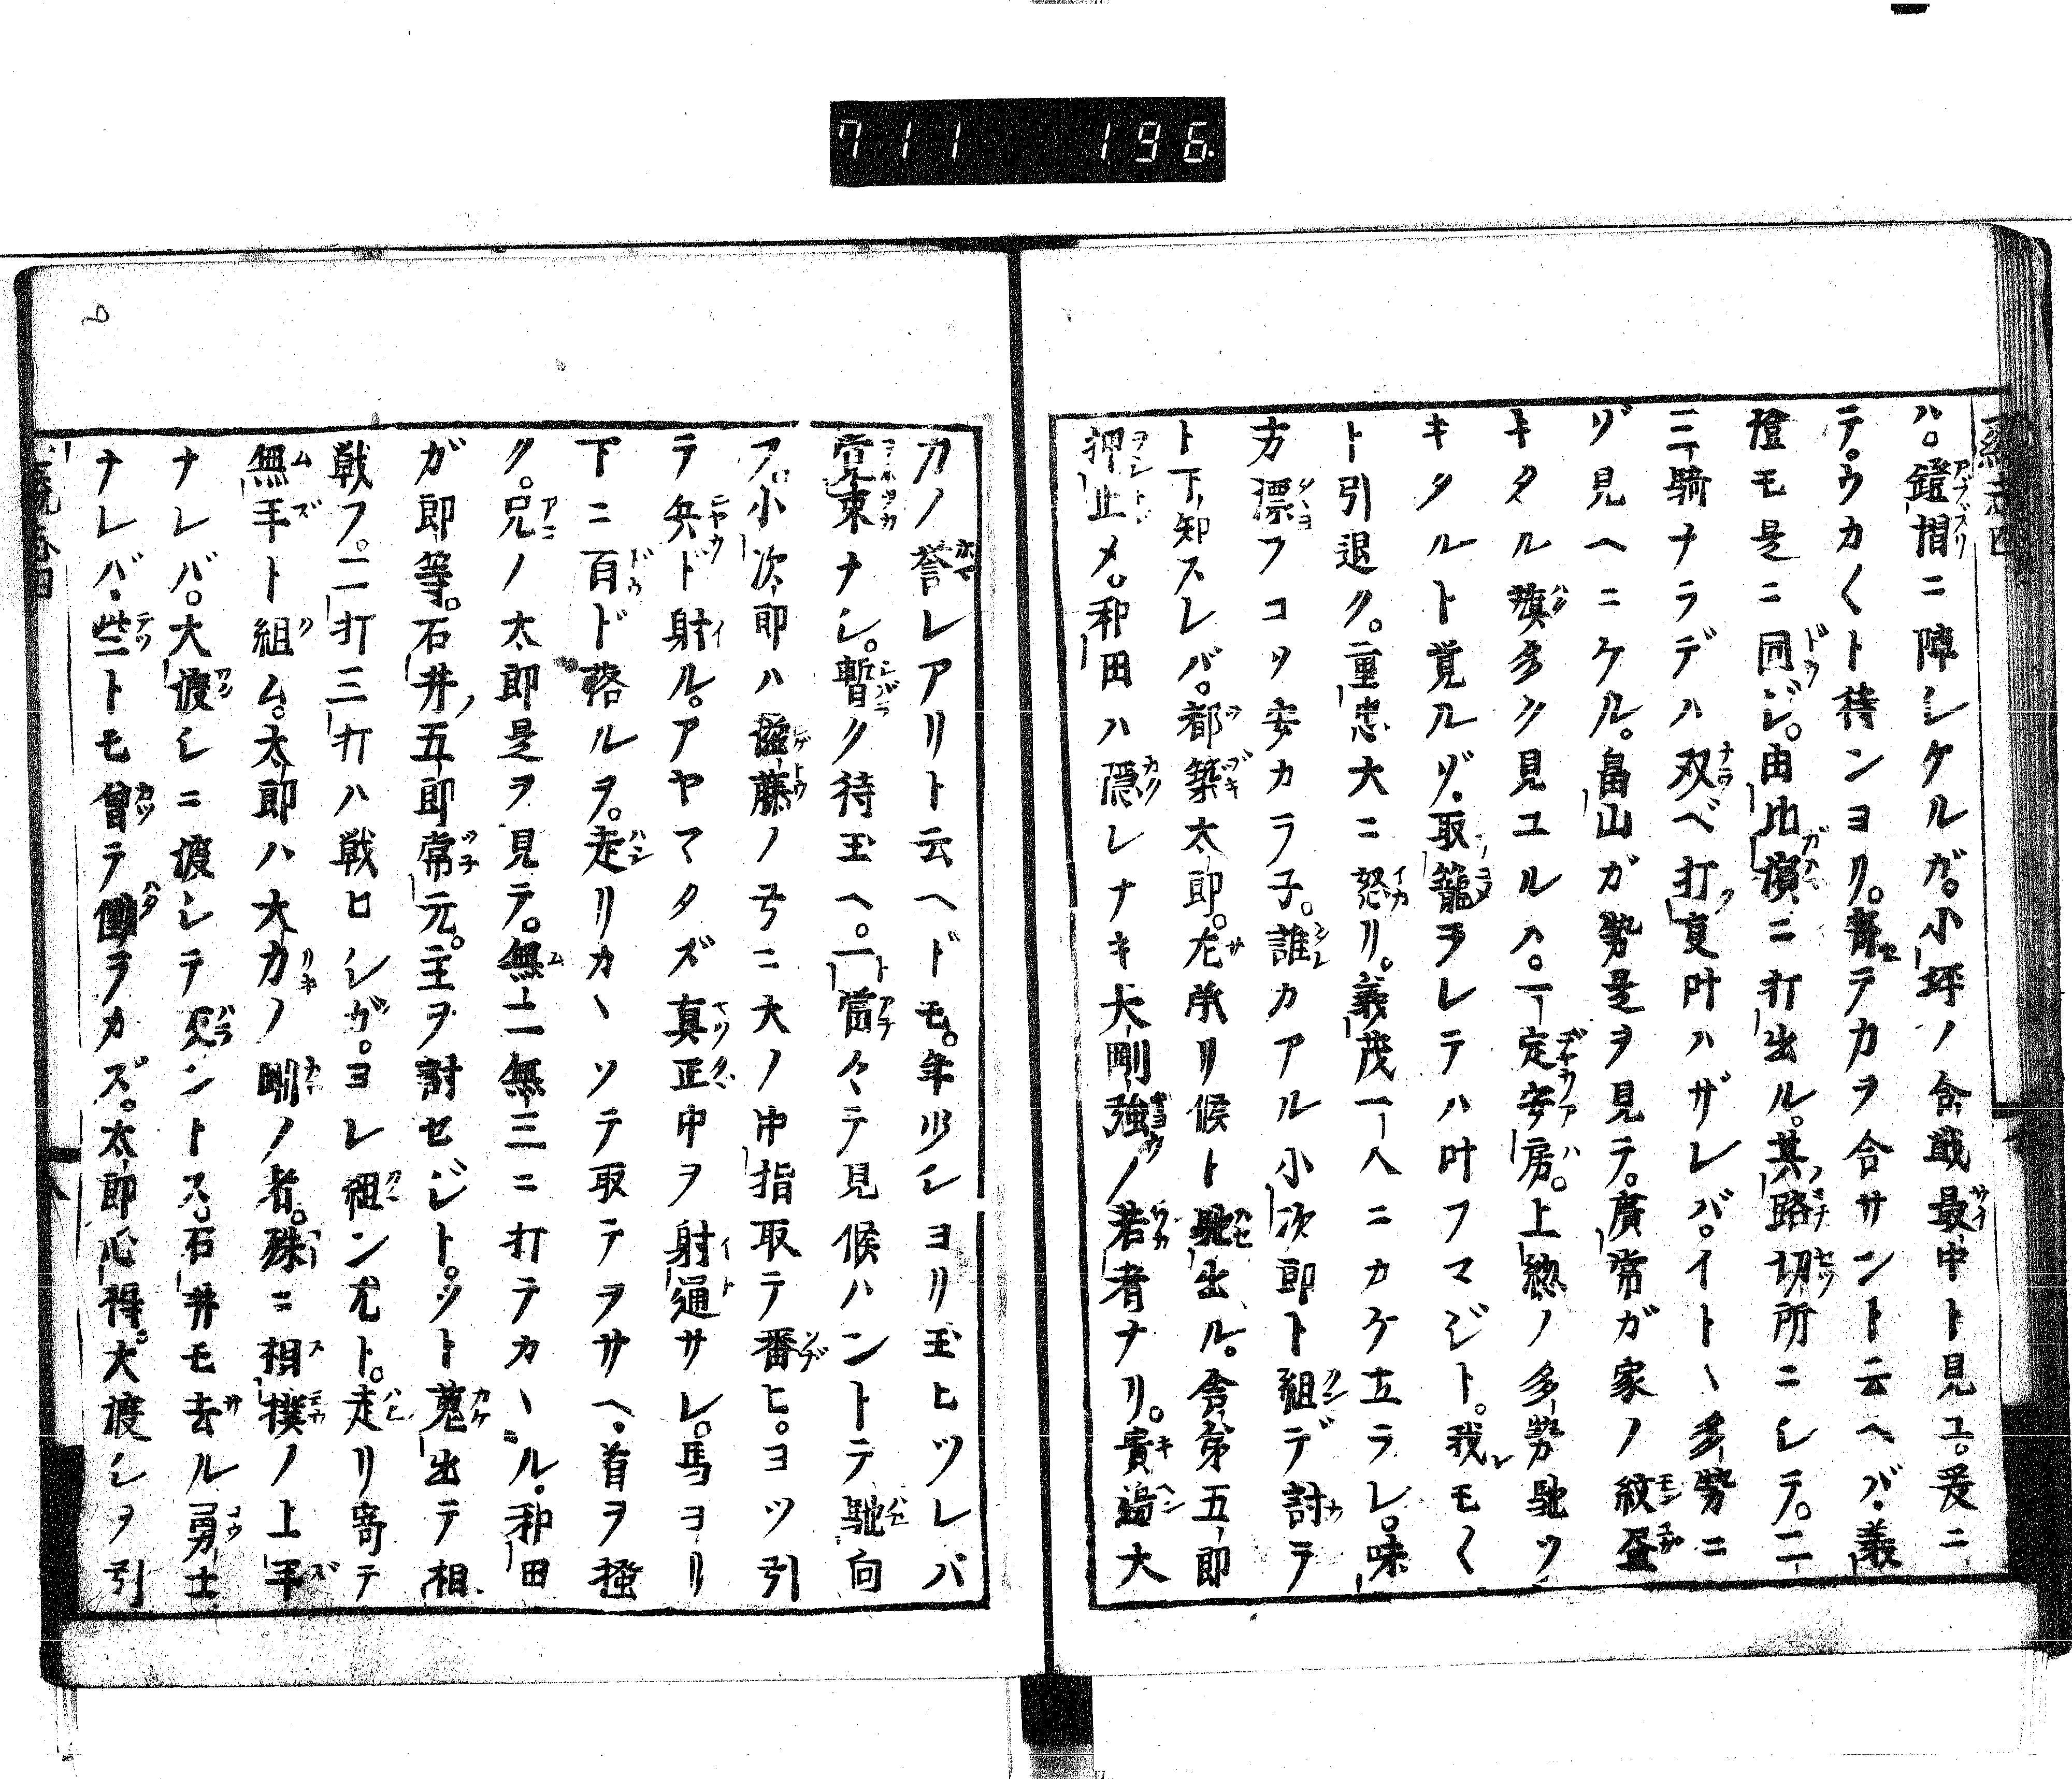 711 196.
ハ。鐙摺ニ陣シケルガ。小坪ノ合戦最中ト見ユ。爰ニ
テ。ウカ〱ト待ンヨリ。寄テカヲ合サント云ヘバ。義
澄モ是ニ同ジ。由比濱ニ打出ル。其路切所ニシテ。二
三騎ナラデハ双ベ打叓叶ハザレバ。イトヽ多勢ニ
ゾ見ヘニケル。畠山ガ勢是ヲ見テ。廣常ガ家ノ紋
キタル旗多ク見ユルハ。一定安房。上総ノ多勢馳ツ
キタルト覚ルゾ。取籠ラレテハ叶フマジト。我モ〱
ト引退ク。重忠大ニ怒リ。義茂一人ニカケ立ラレ。味
方漂フコソ安カラ子。誰カアル小次郎ト組デ討テ
ト下知スレバ。都築太郎。左承リ候ト馳出ル。舎弟五郎
押止メ。和田ハ隠レナキ大剛強ノ若者ナリ。貴邊大
力ノ誉レアリト云ヘドモ。年少シヨリ玉ヒツレバ
覚束ナシ。暫ク待玉ヘ。一當々テ見候ハントテ馳向
フ。小次郎ハ滋藤ノ弓ニ大ノ中指取テ番ヒ。ヨツ引
テ兵ド射ル。アヤマタズ真正中ヲ射通サレ。馬ヨリ
下ニ百ド落ルヲ。走リカヽツテ取テヲサヘ。首ヲ掻
ク。兄ノ太郎是ヲ見テ。無二無三ニ打テカヽル。和田
ガ郎等。石井五郎常元。主ヲ討セジト。ツト蒐出テ相
戦フ。二打三打ハ戦ヒシガ。ヨレ組ン尤ト。走リ寄テ
無手ト組ム。太郎ハ大力ノ剛ノ者。殊ニ相撲ノ上手
ナレバ。大渡シニ渡シテ ントス。石井モ去ル勇士
ナレバ。些トモ曾テ ラカズ。太郎心得。大渡シヲ引